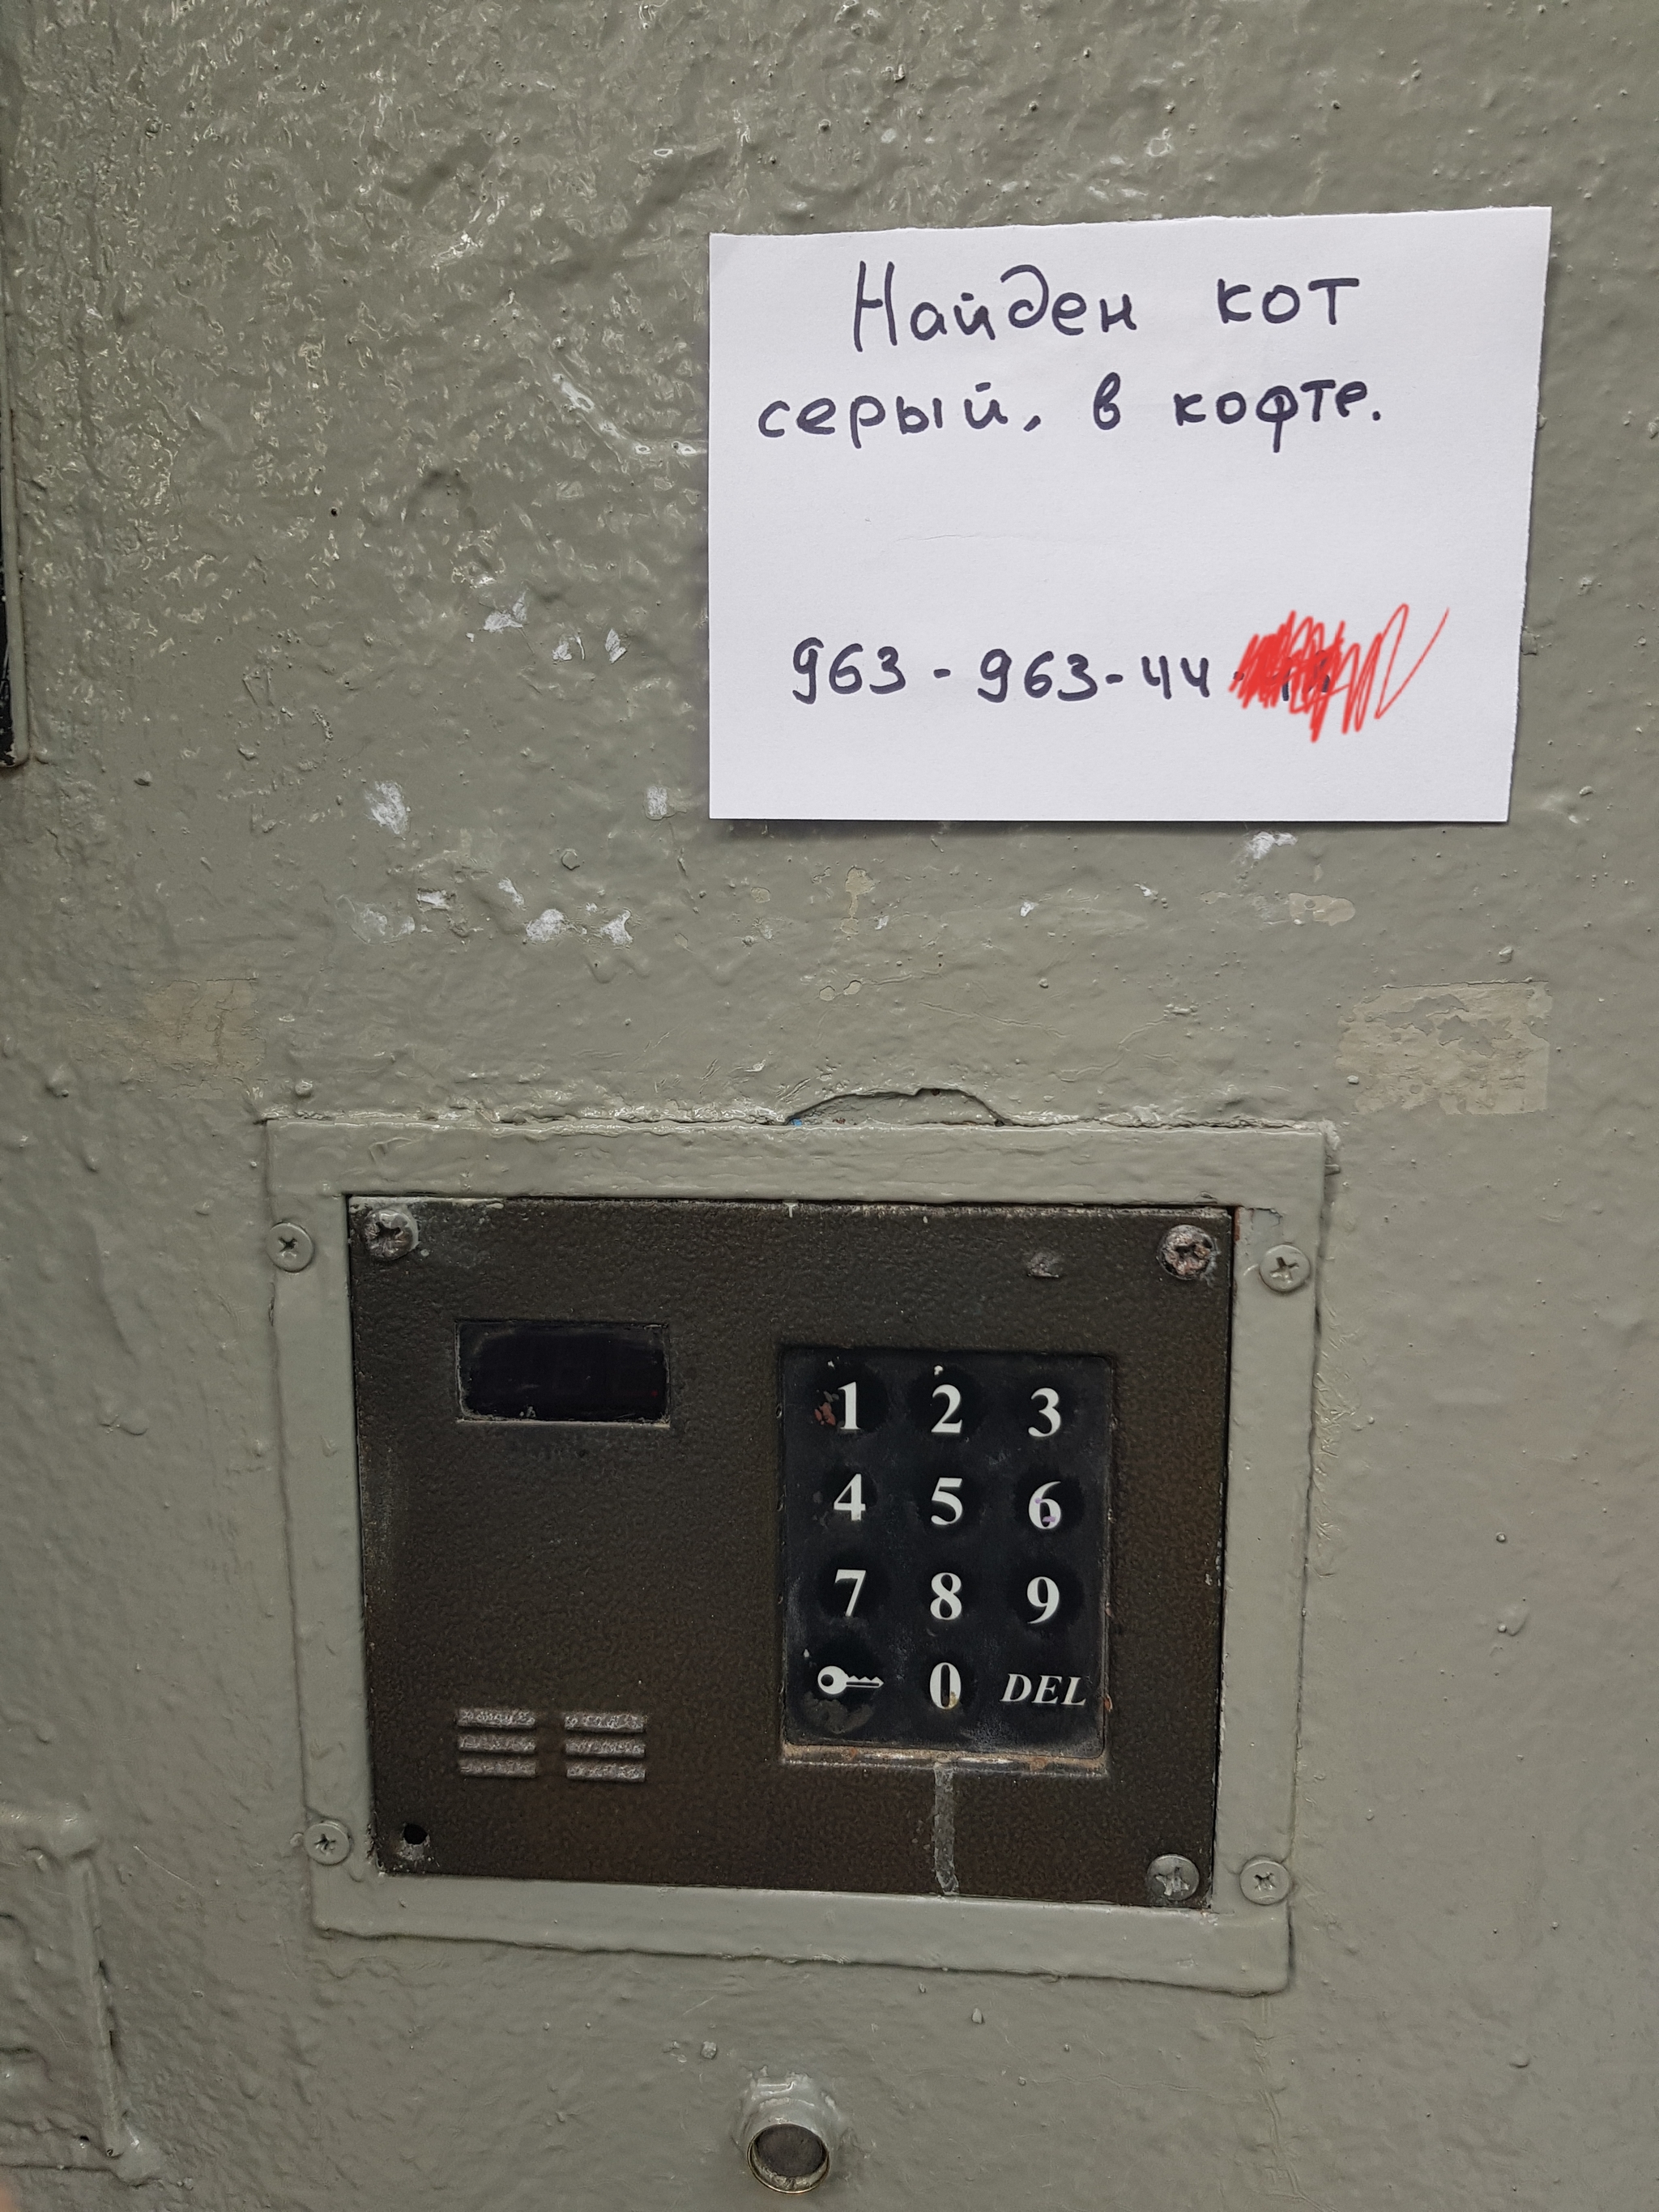 Найден кот
серый, в кофте.
963-963-44
1 2 3
4 5 6
7 8 9
0 DEL